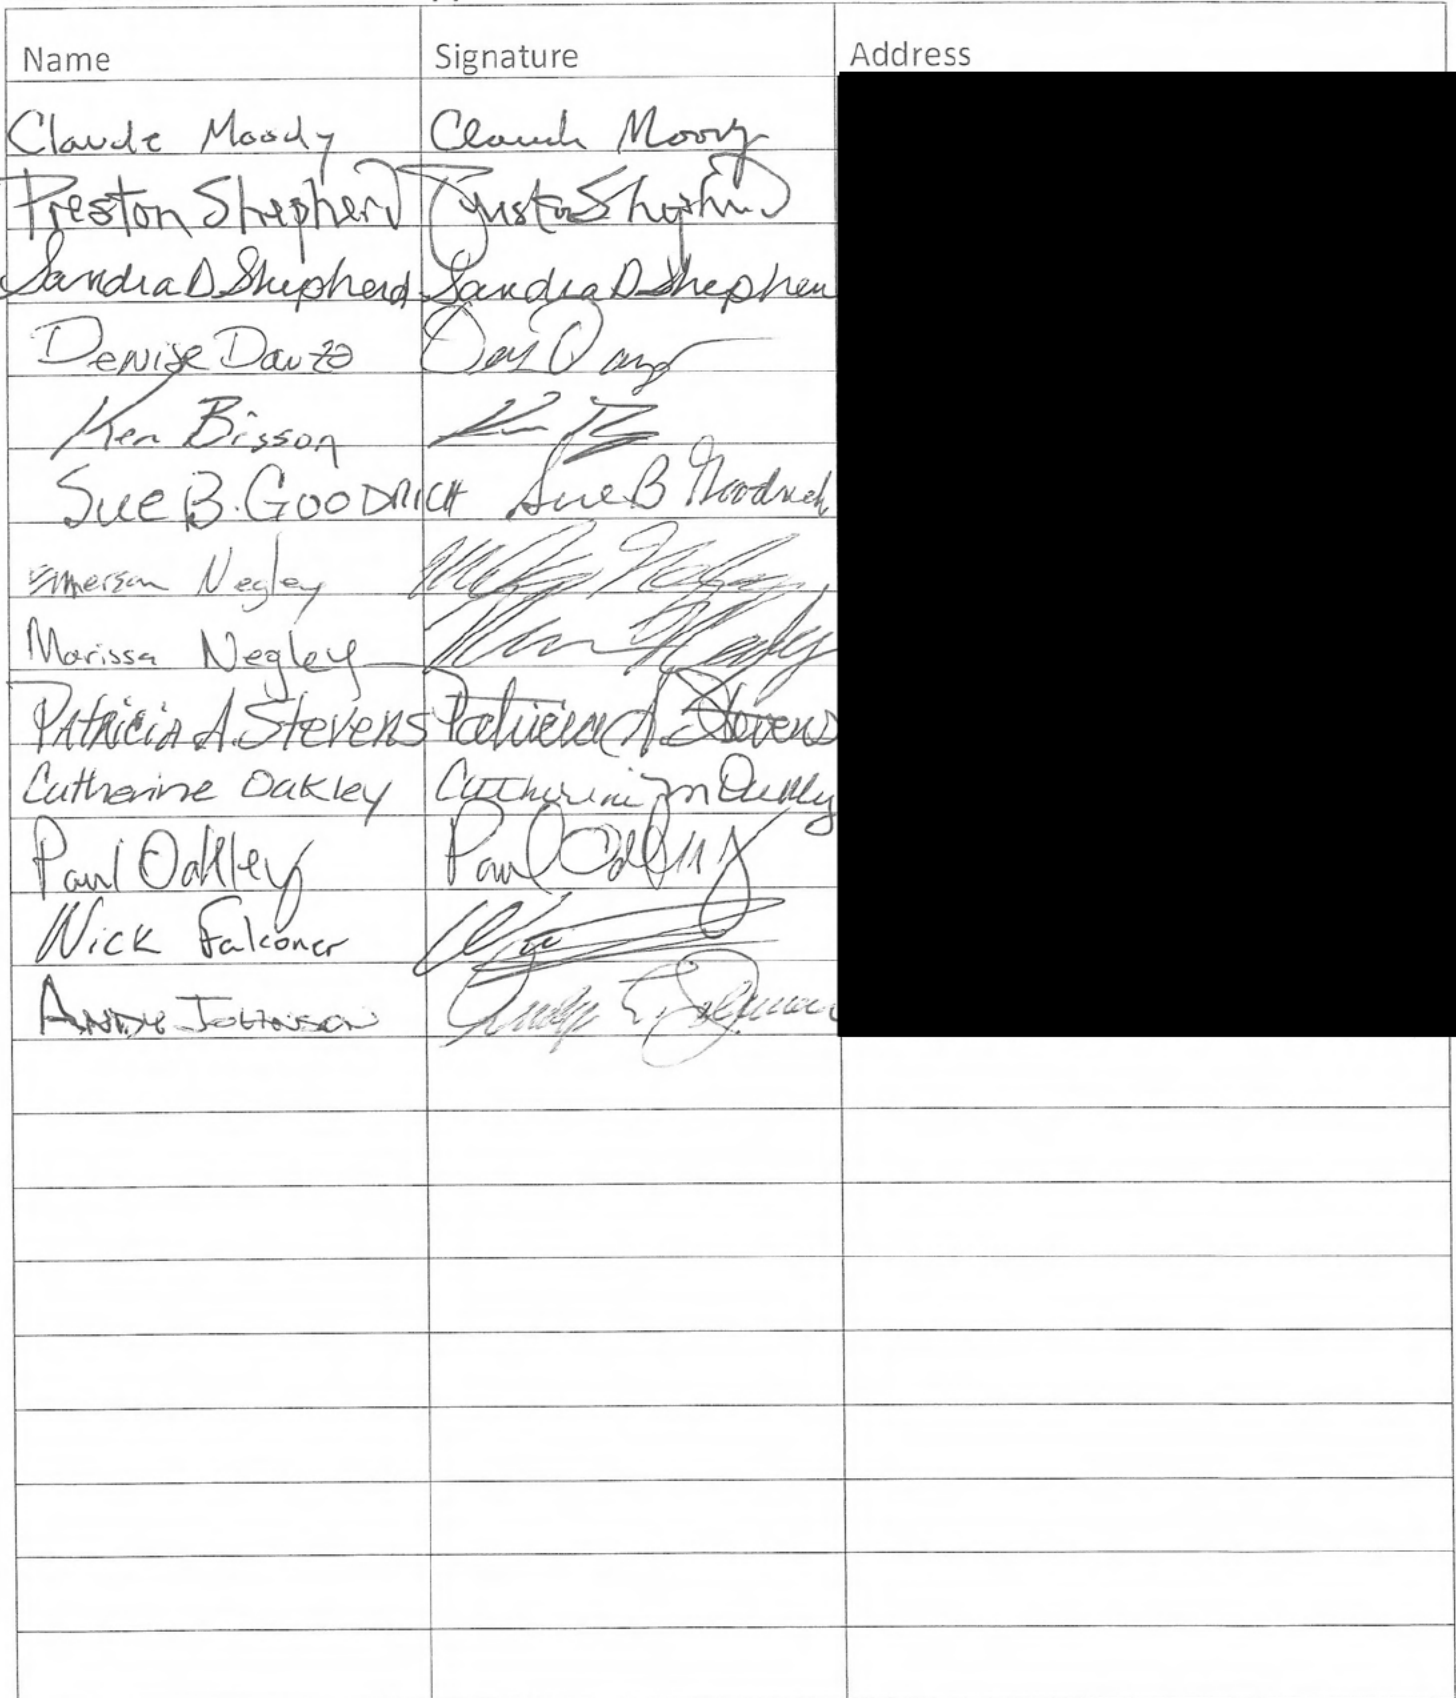 Name Signature Address
Claude Moody Claude Moody
Preston Shepherd Preston Shepherd
Sandra D Shepherd Sandra D Shepher
Denise Dauzo
Ken Bisson
Sue B. Goodrich Sue B Goodrich
Emerson Negley
Marissa Negley
Patricia A. Stevens Patricia A. Stevens
Catherine Oakley Catherine m Oakley
Paul Oakley Paul Oakley
Nick Falconer
Andy Johnson Andy E. Johnson